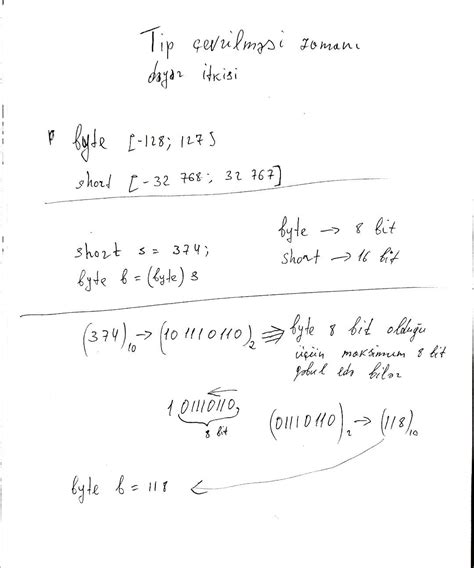 Tip çevrilməsi zamanı
dəyər itkisi
byte [-128; 127]
short [-32 768; 32 767]
short s = 374;
byte b = (byte) s
byte → 8 bit
short → 16 bit
(374)₁₀ → (101110110)₂ ⇒ byte 8 bit olduğu
üçün maksimum 8 bit
qəbul edə bilər
1 01110110₂
8 bit
(01110110)₂ → (118)₁₀
byte b = 118 ←